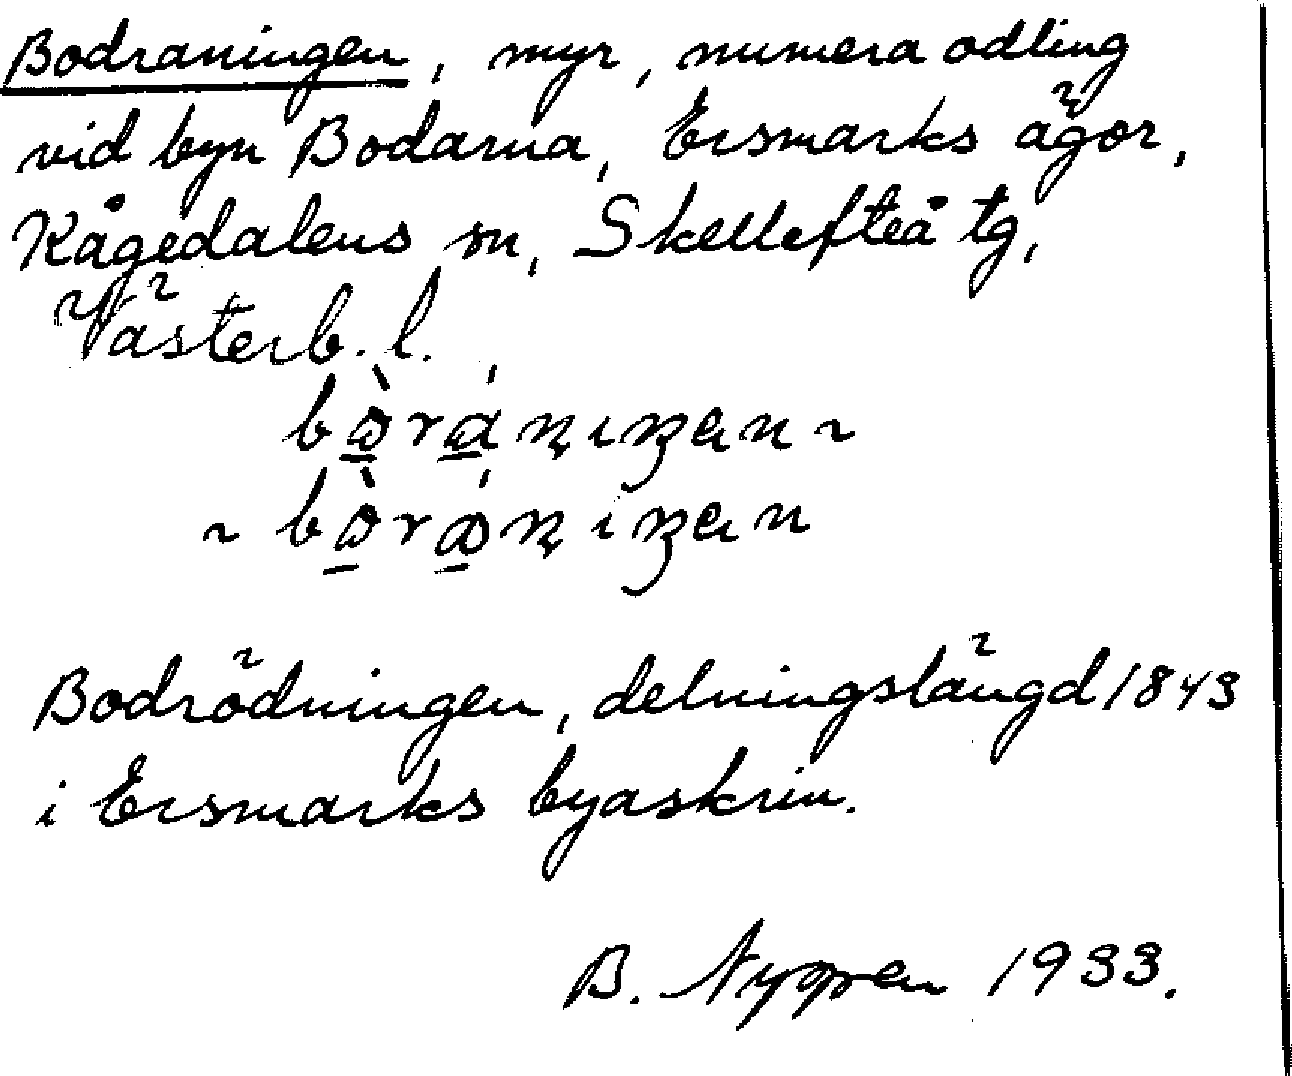 Bodraningen, myr, numera odling
vid byn Bodarna, Ersmarks ägor,
Kågedalens sn, Skellefteå tg,
Västerb. l.
Bodrödningen, delningslängd 1843
i Ersmarks byaskrin.
B. 1933.